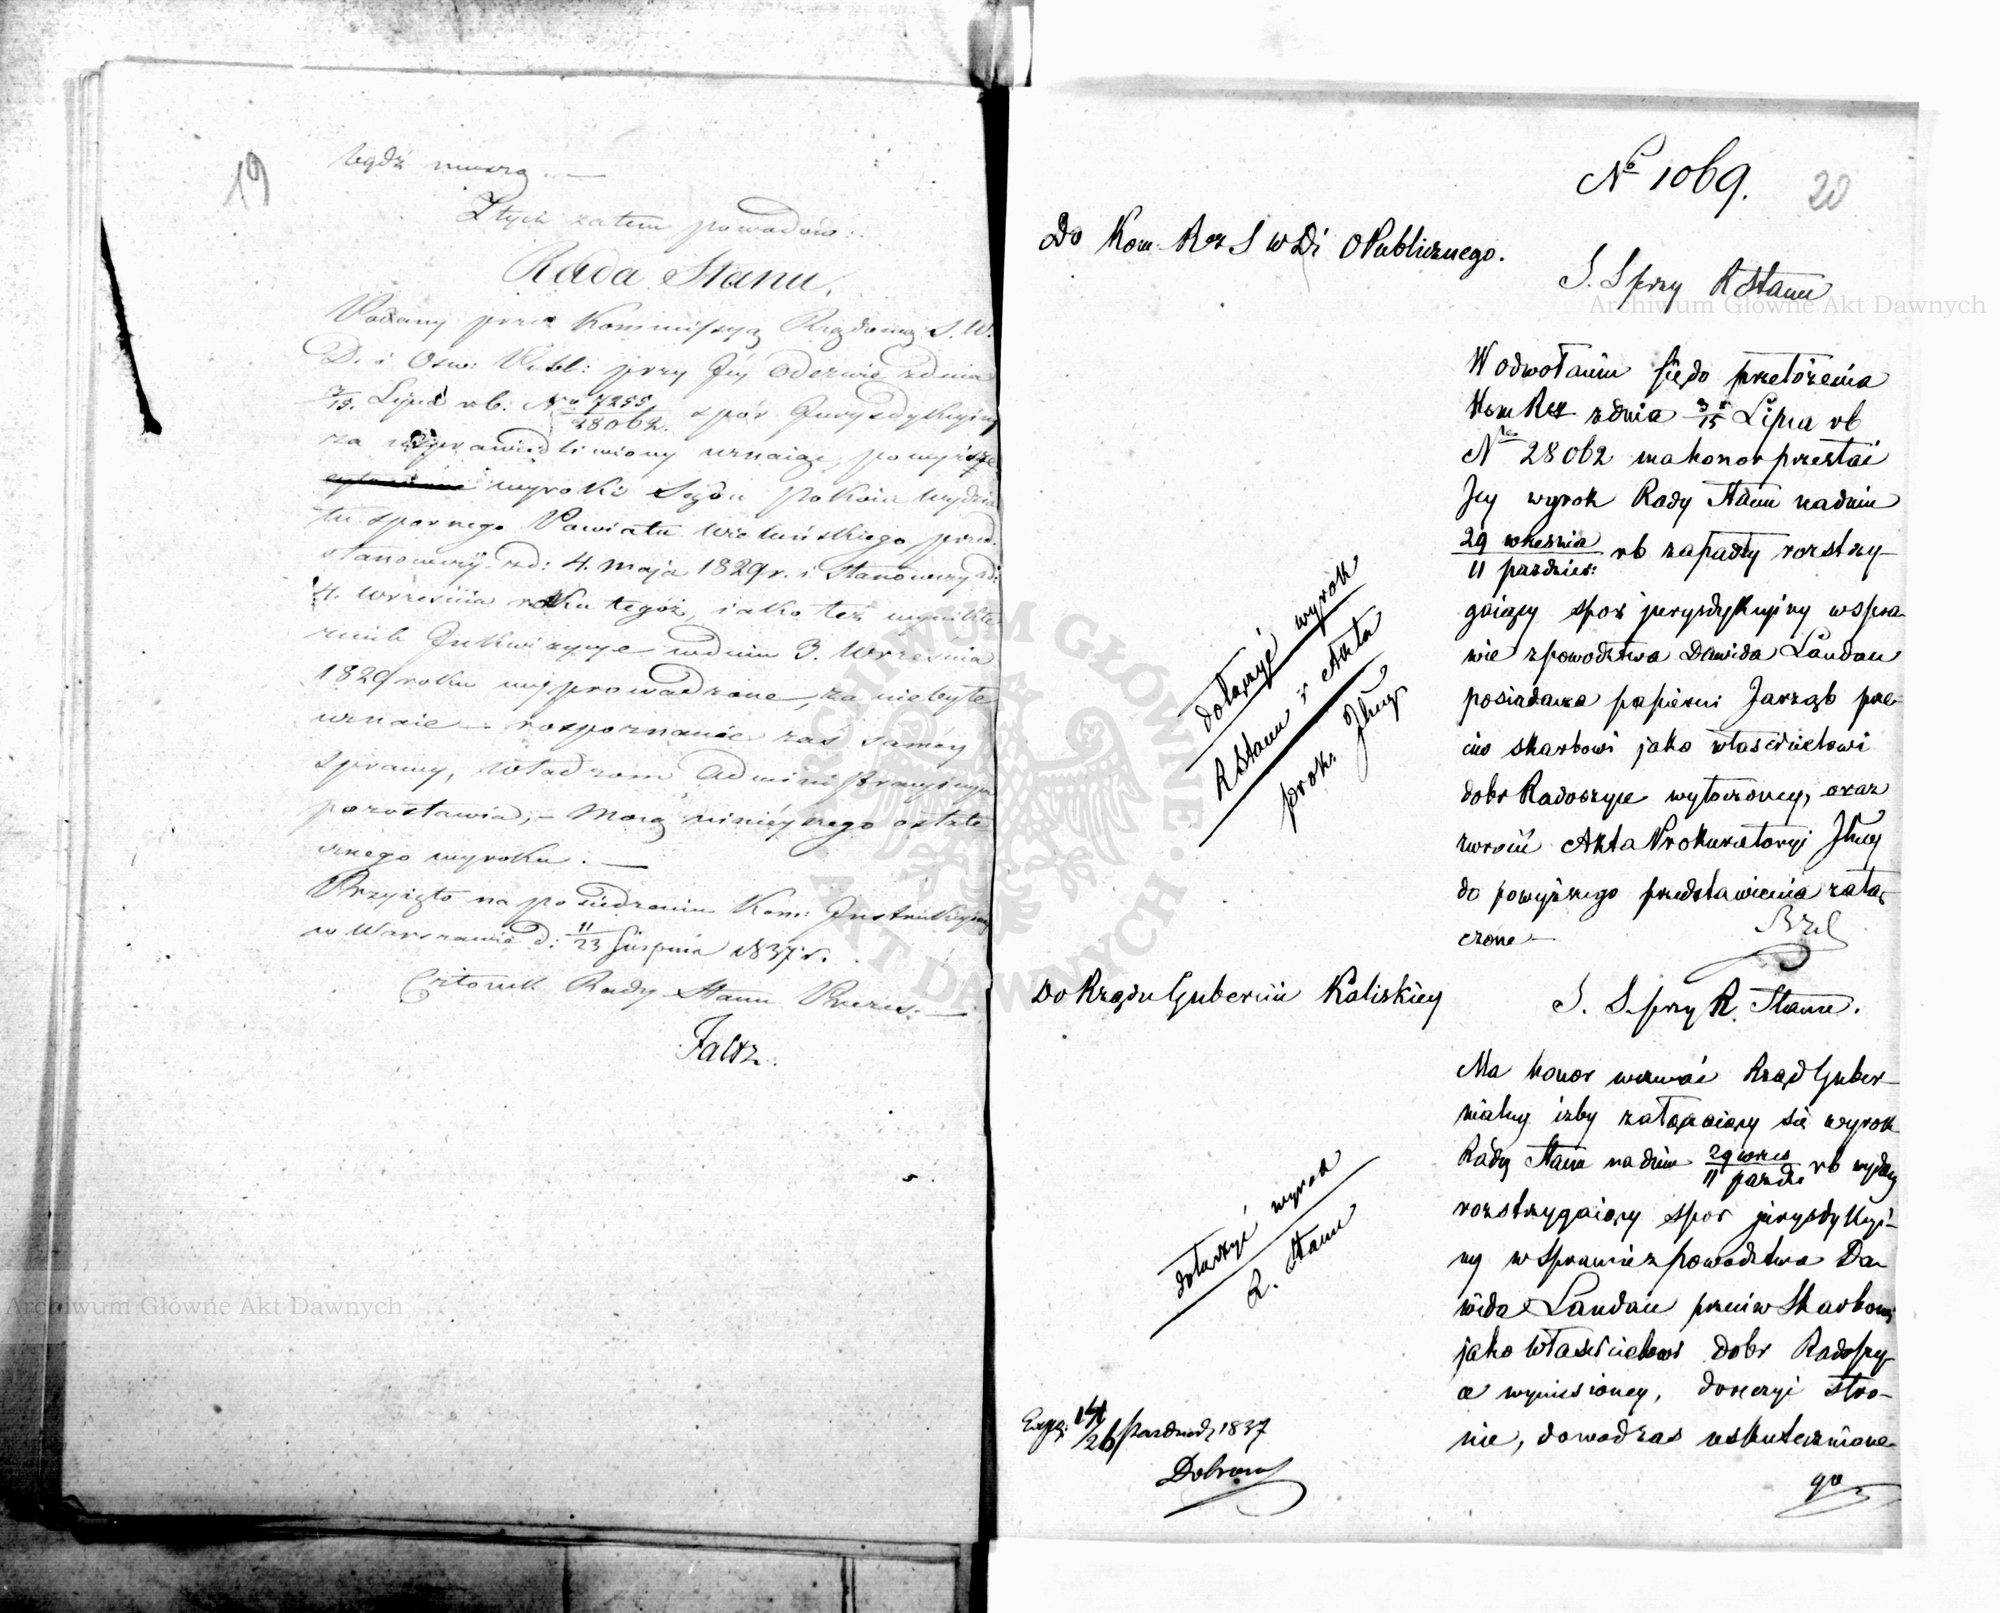 19
bydź muszą. —
Z tych zatem powodów:
Rada Stanu.
Podany przez Kommissyą Rządową S. W.
D. i Ośw: Publ: przy Jéy Odezwie z dnia
3/15. Lipca r b: No 7255/28062. spór Jurysdykcyiny
za usprawiedliwiony uznaiąc, powyższe
wyroki Sądu pokoiu Wydzia
łu spornego Powiatu Wieluńskiego, przed-
stanowczy z d: 4. maja 1829 r. i Stanowczy z d:
4. Września roku tegoż, iako też wynikłe
z nich Inkwizycye w dniu 3. Września
1829 roku wyprowadzone, za niebyłe
uznaie — rozpoznanie zaś saméy
sprawy, Władzom Administracyinym
pozostawia, — Mocą ninieyszego ostate
cznego wyroku. —
Przyięto na posiedzeniu Kom: Instrukcyiney
w Warszawie d: 11/23 Sierpnia 1837 r.
Członek Rady Stanu Prezes. —
Faltz.
No 1069.
20
Do Kom. Rz S W D i O Publicznego.
S. S przy R Stanu
W odwołaniu się do przełożenia
Kom Rz z dnia 3/15 Lipca r b
No 28062 ma honor przesłać
Jey wyrok Rady Stanu na dniu
29 września/11 paździer: r b zapadły rozstrzy-
gaiący spór jurysdykcyiny w spra-
wie z powodztwa Dawida Landau
posiadacza papierni Jarząb prze-
ciw skarbowi jako właścicielowi
dobr Radoszyce wytoczoney, oraz
zwrocić Akta Prokuratoryi Jlney
do powyższego przedstawienia załą-
czone —
dołączyć wyrok
R Stanu i Akta
prok. Jlney
Do Rządu Gubernii Kaliskiey
S. S. przy R. Stanu.
Ma honor wezwać Rząd Guber-
nialny izby załączaiący się wyrok
Rady Stanu na dniu 29 wrześ/11 paźdz r b wydany
rozstrzygaiący spor jurysdykcyi-
ny w sprawie z powodztwa Da-
wida Landau przeciw Skarbowi
jako Właścicielowi Dobr Radoszy-
ce wyniesioney, doręczyć stro-
nie, dowod zaś uskutecznione-
go
dołączyć wyrok
R. Stanu
Exp: 14/26 Październ, 1837
Archiwum Główne Akt Dawnych
Archiwum Główne Akt Dawnych
ARCHIWUM GŁÓWNE · AKT DAWNYCH ·